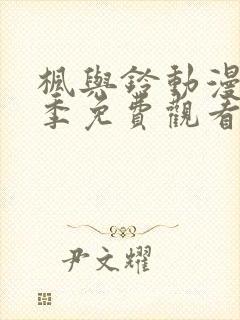 楓與鈴動漫
季免費觀看
尹文耀